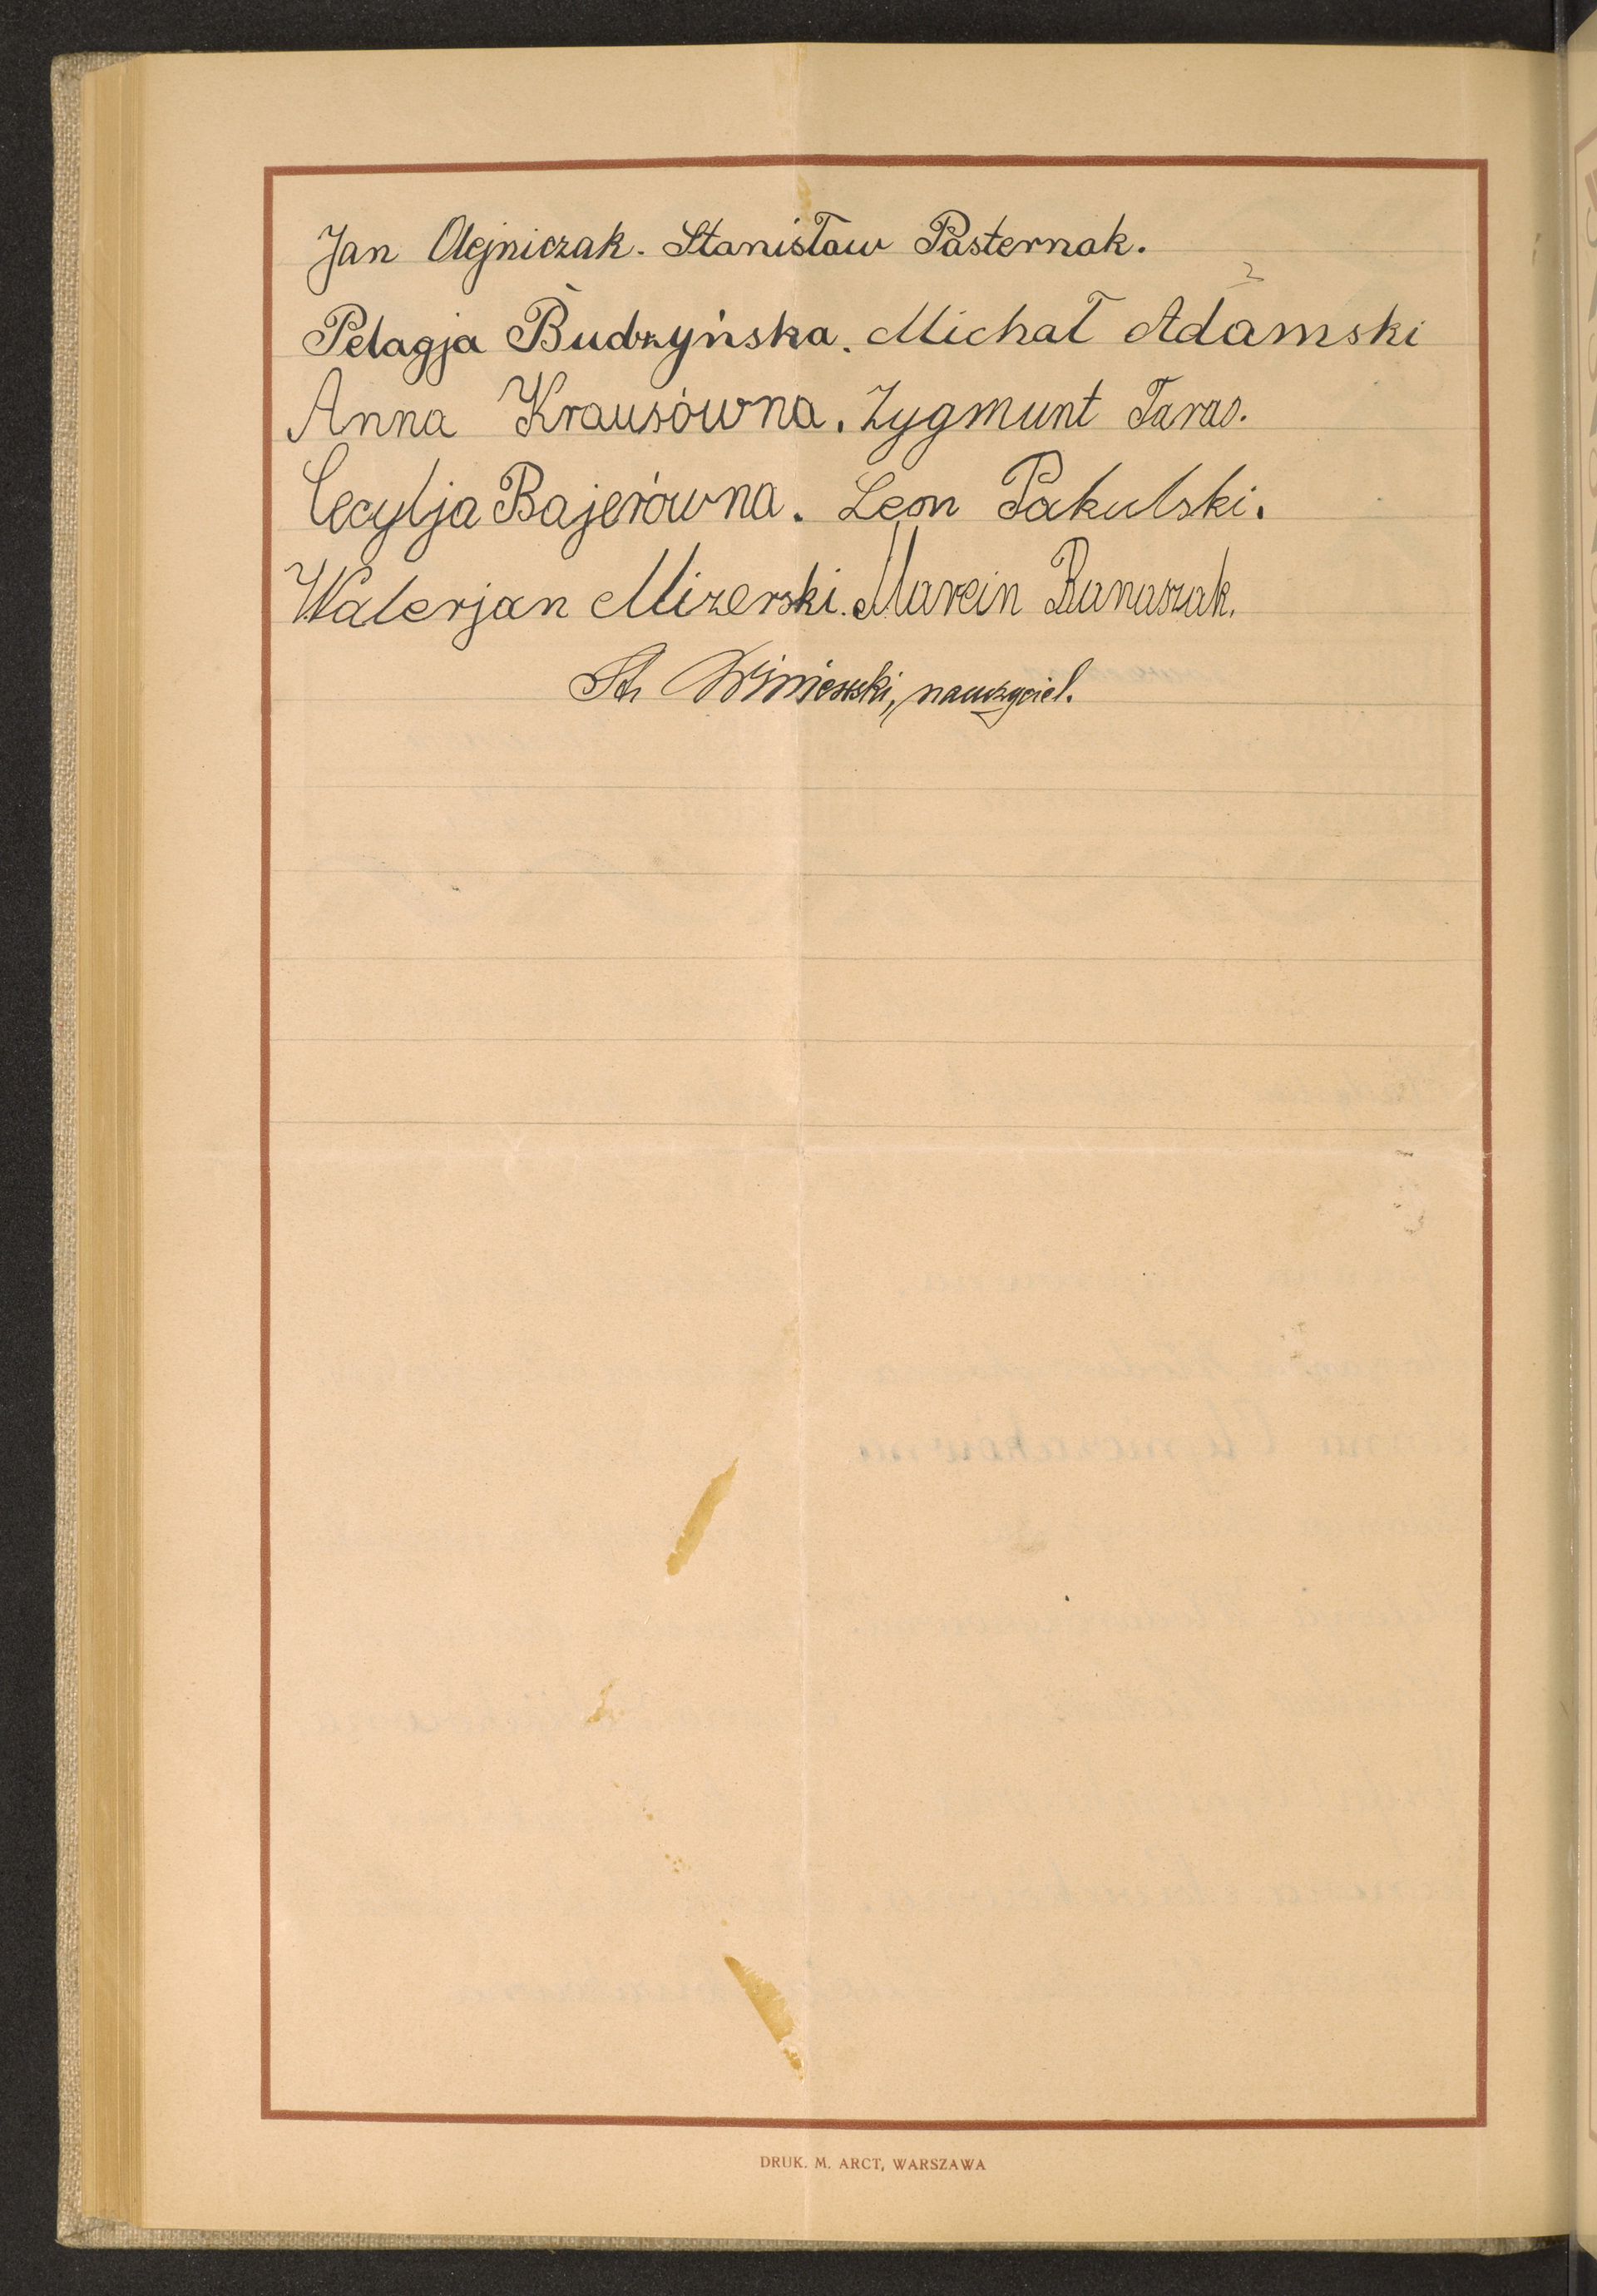 Jan Olejniczak. Stanisław Pasternak.
Pelagja Budzyńska. Michał Adamski
Anna Krausówna. Zygmunt Taras.
Cecylja Bajerówna. Leon Pakulski.
Walerjan Mizerski. Marcin Banaszak.
St. Wiśniewski, nauczyciel.
DRUK. M. ARCT, WARSZAWA